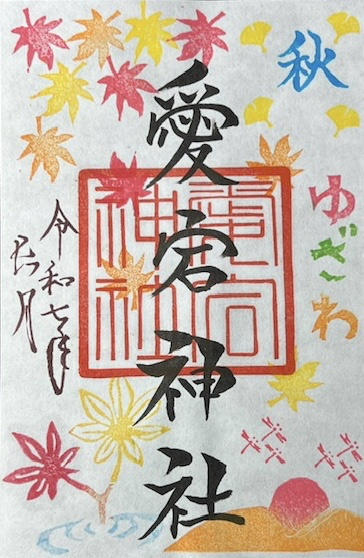 秋
ゆざわ
愛宕神社
愛宕
神社
令和七年